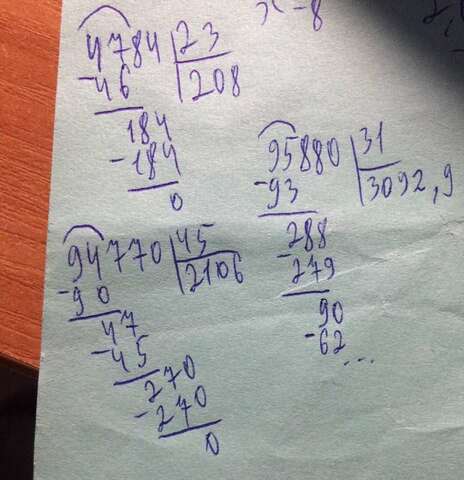 x - 8
4784 23
-46 208
184
-184
0
95880 31
-93 3092,9
288
-279
90
-62
...
94770 45
-90 2106
47
-45
270
-270
0